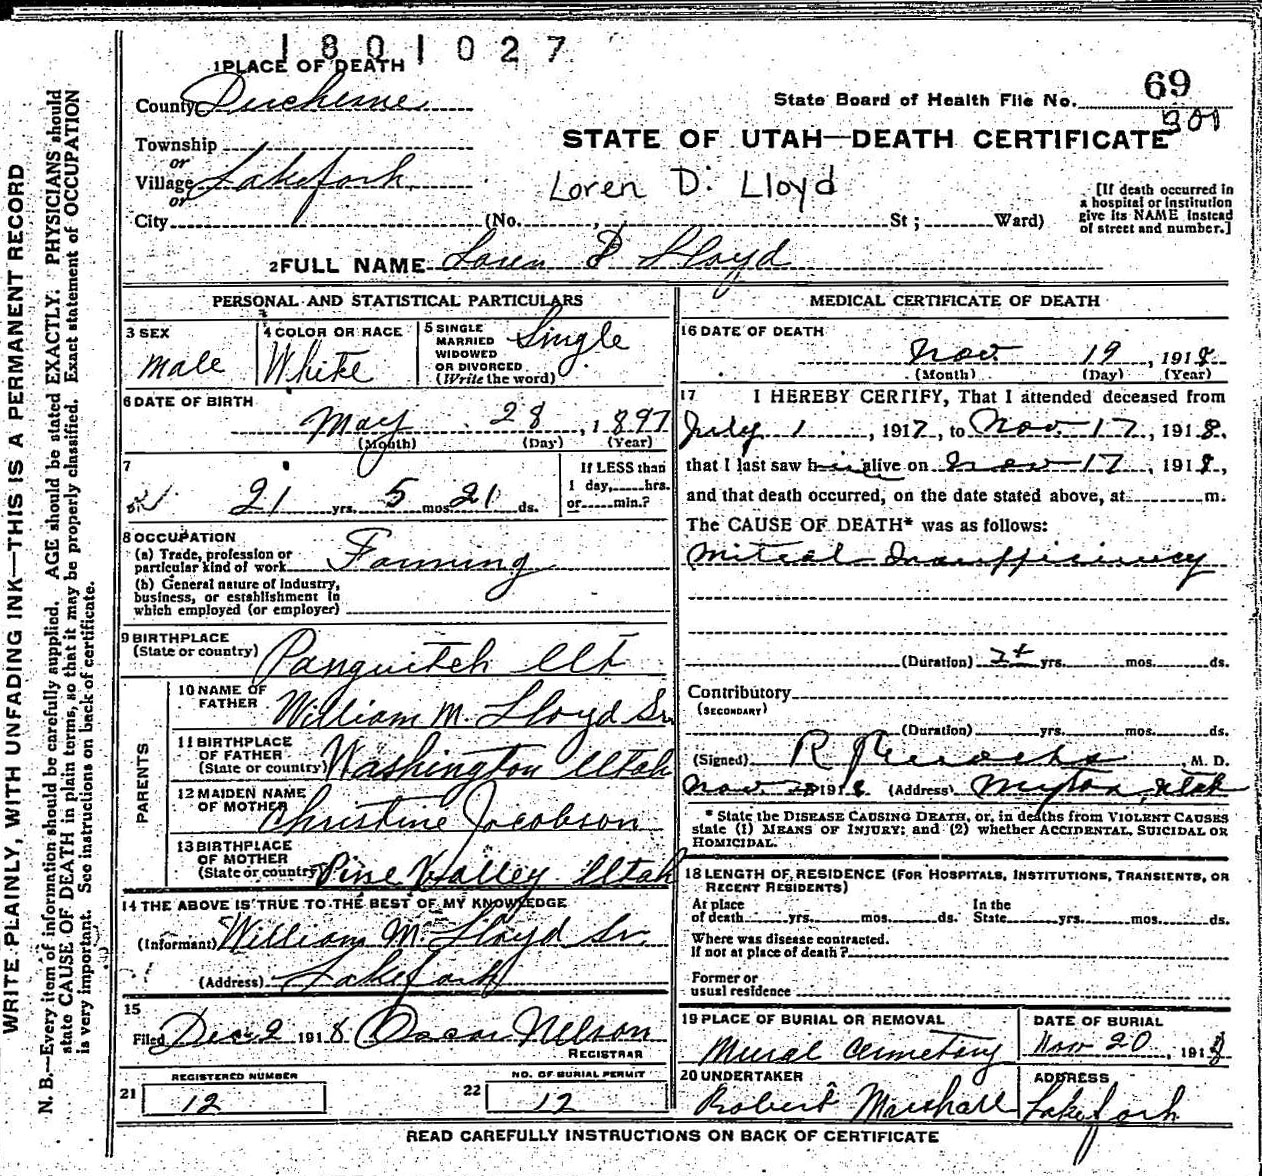 1801027
1 PLACE OF DEATH
County Duchesne
State Board of Health File No. 69
301
Township
or
Village Lakefork
or
City (No. , St ; Ward)
STATE OF UTAH—DEATH CERTIFICATE
Loren D. Lloyd
[If death occurred in
a hospital or institution
give its NAME instead
of street and number.]
2 FULL NAME Loren D Lloyd
PERSONAL AND STATISTICAL PARTICULARS
3 SEX
Male
4 COLOR OR RACE
White
5 SINGLE
MARRIED
WIDOWED
OR DIVORCED
(Write the word)
Single
6 DATE OF BIRTH
May 28, 1897
(Month) (Day) (Year)
7
21 yrs. 5 mos. 21 ds.
If LESS than
1 day, hrs.
or min.?
8 OCCUPATION
(a) Trade, profession or
particular kind of work Farming
(b) General nature of Industry,
business, or establishment in
which employed (or employer)
9 BIRTHPLACE
(State or country) Panguitch Ut
PARENTS
10 NAME OF
FATHER William M. Lloyd Sr.
11 BIRTHPLACE
OF FATHER
(State or country) Washington Utah
12 MAIDEN NAME
OF MOTHER Christine Jacobson
13 BIRTHPLACE
OF MOTHER
(State or country) Pine Valley Utah
14 THE ABOVE IS TRUE TO THE BEST OF MY KNOWLEDGE
(Informant) William M. Lloyd Sr.
(Address) Lakefork
15
Filed Dec 2 1918 Oscar Nelson
REGISTRAR
21 REGISTERED NUMBER
12
22 NO. OF BURIAL PERMIT
12
MEDICAL CERTIFICATE OF DEATH
16 DATE OF DEATH
Nov 19, 1918
(Month) (Day) (Year)
17 I HEREBY CERTIFY, That I attended deceased from
July 1, 1917, to Nov. 17, 1918,
that I last saw him alive on Nov 17, 1918,
and that death occurred, on the date stated above, at m.
The CAUSE OF DEATH* was as follows:
Mitral Insufficiency
(Duration) 2+ yrs. mos. ds.
Contributory
(SECONDARY)
(Duration) yrs. mos. ds.
(Signed) R , M. D.
Nov 28 1918 (Address) Myton, Utah
* State the DISEASE CAUSING DEATH, or, in deaths from VIOLENT CAUSES
state (1) MEANS OF INJURY; and (2) whether ACCIDENTAL, SUICIDAL OR
HOMICIDAL.
18 LENGTH OF RESIDENCE (FOR HOSPITALS, INSTITUTIONS, TRANSIENTS, OR
RECENT RESIDENTS)
At place In the
of death yrs. mos. ds. State yrs. mos. ds.
Where was disease contracted.
If not at place of death?
Former or
usual residence
19 PLACE OF BURIAL OR REMOVAL
Mural Cemetery
DATE OF BURIAL
Nov 20, 1918
20 UNDERTAKER
Robert Marshall
ADDRESS
Lakefork
READ CAREFULLY INSTRUCTIONS ON BACK OF CERTIFICATE
WRITE PLAINLY, WITH UNFADING INK—THIS IS A PERMANENT RECORD
N. B.—Every item of information should be carefully supplied. AGE should be stated EXACTLY. PHYSICIANS should
state CAUSE OF DEATH in plain terms, so that it may be properly classified. Exact statement of OCCUPATION
is very important. See instructions on back of certificate.